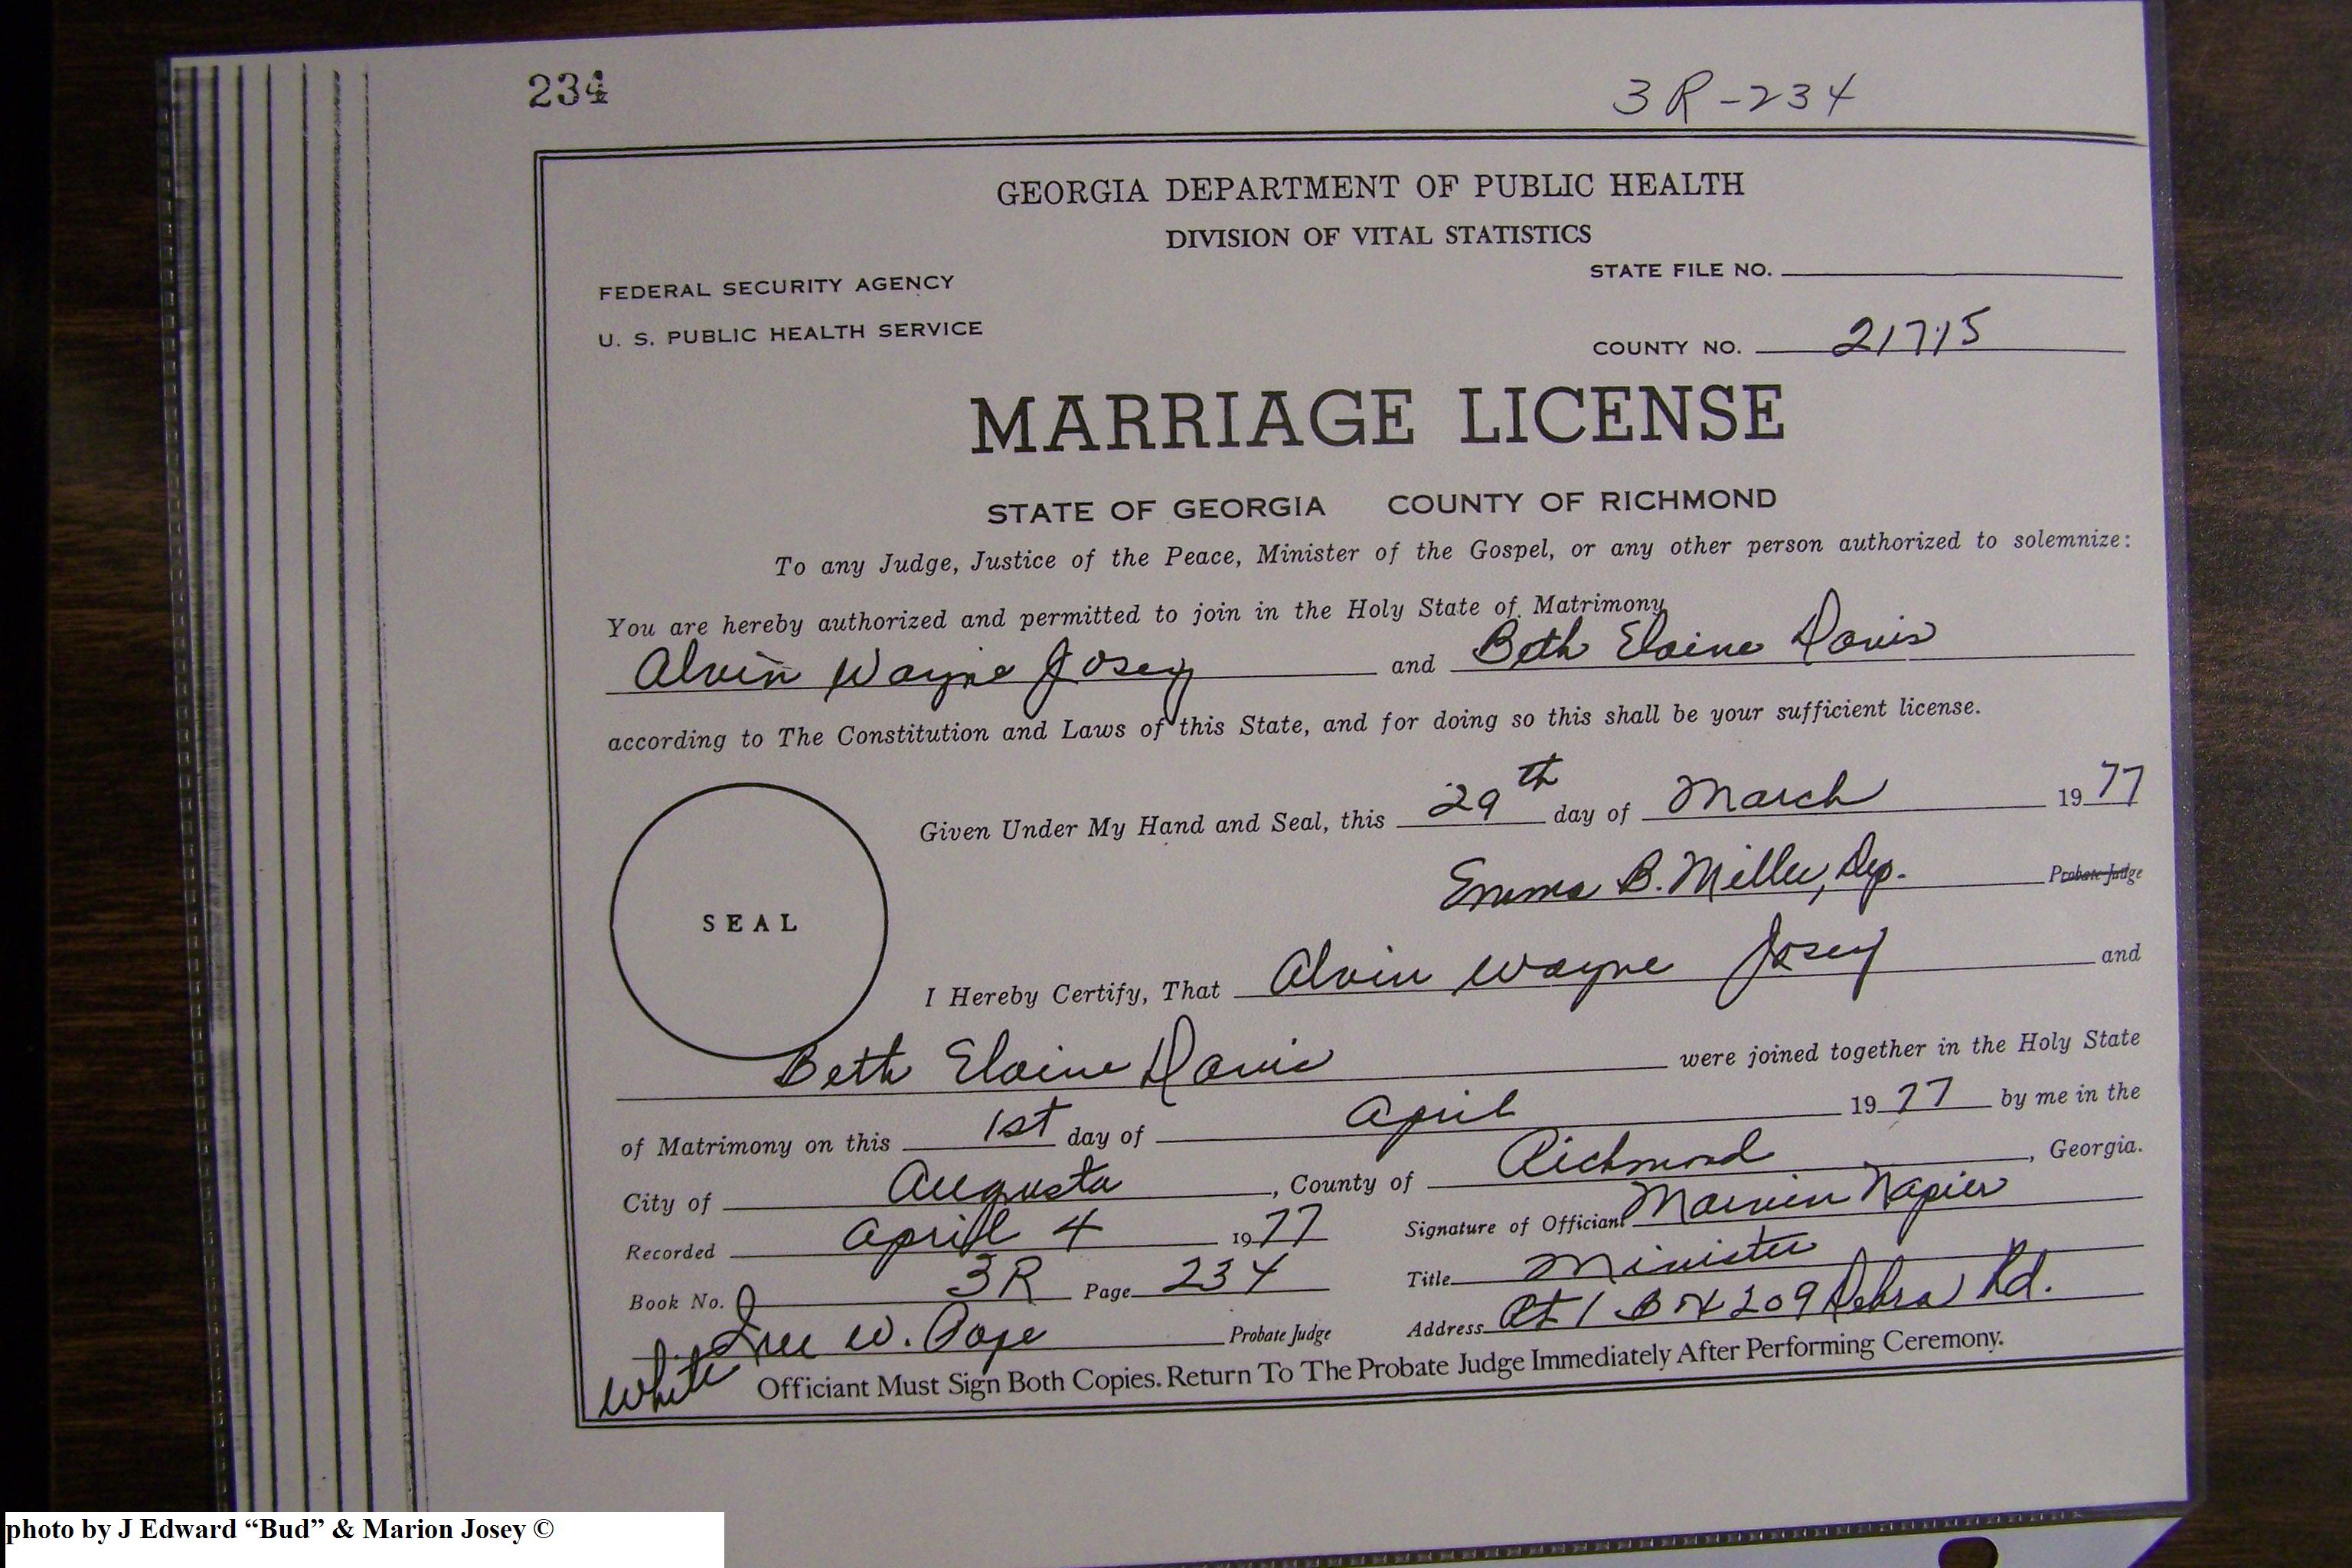 234
3R-234
GEORGIA DEPARTMENT OF PUBLIC HEALTH
DIVISION OF VITAL STATISTICS
FEDERAL SECURITY AGENCY
STATE FILE NO.
U. S. PUBLIC HEALTH SERVICE
COUNTY NO. 21715
MARRIAGE LICENSE
STATE OF GEORGIA COUNTY OF RICHMOND
To any Judge, Justice of the Peace, Minister of the Gospel, or any other person authorized to solemnize:
You are hereby authorized and permitted to join in the Holy State of Matrimony
Alvin Wayne Josey and Beth Elaine Davis
according to The Constitution and Laws of this State, and for doing so this shall be your sufficient license.
Given Under My Hand and Seal, this 29th day of March 1977
Emma B. Miller, Dep. Probate Judge
SEAL
I Hereby Certify, That Alvin Wayne Josey and
Beth Elaine Davis were joined together in the Holy State
of Matrimony on this 1st day of April 1977 by me in the
City of Augusta, County of Richmond, Georgia.
Recorded April 4 1977 Signature of Officiant Marvin Napier
Book No. 3R Page 234 Title Minister
W. Pope Probate Judge Address Rt 1 Box 209 Debra Rd.
White
Officiant Must Sign Both Copies. Return To The Probate Judge Immediately After Performing Ceremony.
photo by J Edward “Bud” & Marion Josey ©